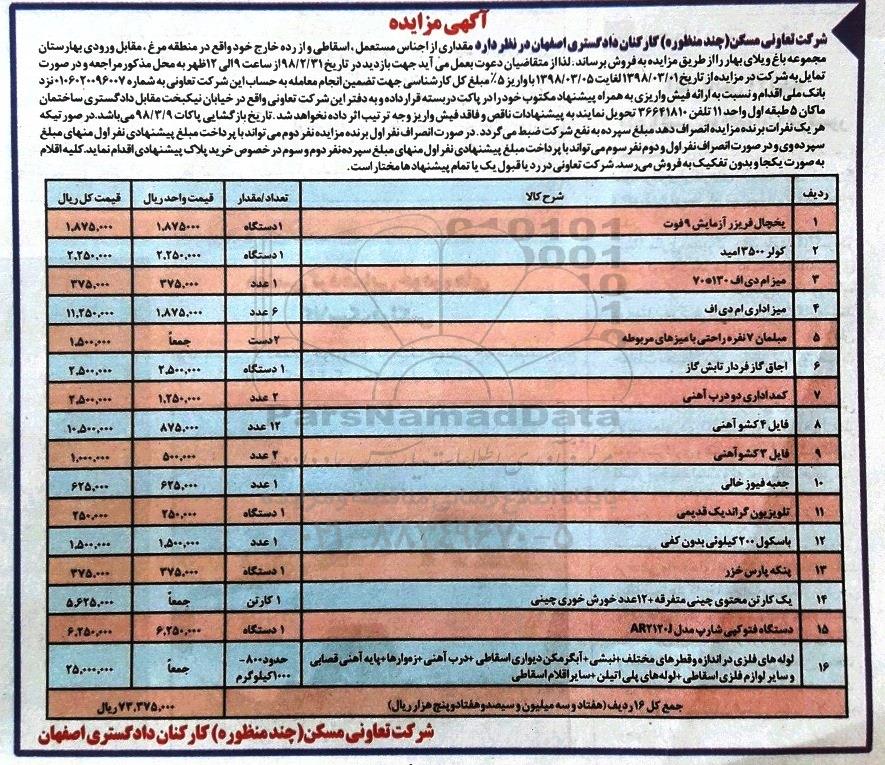 آگهی مزایده
شرکت تعاونی مسکن (چند منظوره) کارکنان دادگستری اصفهان در نظر دارد مقداری از اجناس مستعمل، اسقاطی و از رده خارج خود واقع در منطقه مرغ، مقابل ورودی بهارستان
مجموعه باغ ویلای بهار را از طریق مزایده به فروش برساند. لذا از متقاضیان دعوت بعمل می آید جهت بازدید در تاریخ ۹۸/۲/۳۱ از ساعت ۹ الی ۱۲ ظهر به محل مذکور مراجعه و در صورت
تمایل به شرکت در مزایده از تاریخ ۱۳۹۸/۰۳/۰۱ لغایت ۱۳۹۸/۰۳/۰۵ با واریز ۵٪ مبلغ کل کارشناسی جهت تضمین انجام معامله به حساب این شرکت تعاونی به شماره ۰۱۰۶۰۲۰۰۹۶۰۰۷ نزد
بانک ملی اقدام و نسبت به ارائه فیش واریزی به همراه پیشنهاد مکتوب خود را در پاکت دربسته قرار داده و به دفتر این شرکت تعاونی واقع در خیابان نیکبخت مقابل دادگستری ساختمان
ماکان ۵ طبقه اول واحد ۱۱ تلفن ۳۶۶۴۱۸۱۰ تحویل نمایند به پیشنهادات ناقص و فاقد فیش واریز وجه ترتیب اثر داده نخواهد شد. تاریخ بازگشایی پاکات ۹۸/۳/۹ می باشد. در صورتیکه
هر یک نفرات برنده مزایده انصراف دهد مبلغ سپرده به نفع شرکت ضبط می گردد. در صورت انصراف نفر اول برنده مزایده نفر دوم می تواند با پرداخت مبلغ پیشنهادی نفر اول منهای مبلغ
سپرده وی و در صورت انصراف نفر اول و دوم نفر سوم می تواند با پرداخت مبلغ پیشنهادی نفر اول منهای مبلغ سپرده نفر دوم و سوم در خصوص خرید پلاک پیشنهادی اقدام نماید. کلیه اقلام
به صورت یکجا و بدون تفکیک به فروش می رسد. شرکت تعاونی در رد یا قبول یک یا تمام پیشنهادها مختار است.
ردیف شرح کالا تعداد/مقدار قیمت واحد ریال قیمت کل ریال
۱ یخچال فریزر آزمایش ۹ فوت ۱ دستگاه ۱،۸۷۵۰۰۰ ۱،۸۷۵،۰۰۰
۲ کولر ۳۵۰۰ امید ۱ دستگاه ۲،۲۵۰،۰۰۰ ۲،۲۵۰،۰۰۰
۳ میز ام دی اف ۱۳۰*۷۰ ۱ عدد ۳۷۵،۰۰۰ ۳۷۵،۰۰۰
۴ میز اداری ام دی اف ۶ عدد ۱،۸۷۵،۰۰۰ ۱۱،۲۵۰،۰۰۰
۵ مبلمان ۷ نفره راحتی با میزهای مربوطه ۲ دست جمعاً ۱،۵۰۰،۰۰۰
۶ اجاق گاز فردار تابش گاز ۱ دستگاه ۲،۵۰۰،۰۰۰ ۲،۵۰۰،۰۰۰
۷ کمد اداری دو درب آهنی ۲ عدد ۱،۲۵۰،۰۰۰ ۲،۵۰۰،۰۰۰
۸ فایل ۴ کشو آهنی ۱۲ عدد ۸۷۵،۰۰۰ ۱۰،۵۰۰،۰۰۰
۹ فایل ۳ کشو آهنی ۲ عدد ۵۰۰،۰۰۰ ۱،۰۰۰،۰۰۰
۱۰ جعبه فیوز خالی ۱ عدد ۶۲۵،۰۰۰ ۶۲۵،۰۰۰
۱۱ تلویزیون گراندیک قدیمی ۱ دستگاه ۲۵۰،۰۰۰ ۲۵۰،۰۰۰
۱۲ باسکول ۲۰۰ کیلوئی بدون کفی ۱ عدد ۱،۵۰۰،۰۰۰ ۱،۵۰۰،۰۰۰
۱۳ پنکه پارس خزر ۱ دستگاه ۳۷۵،۰۰۰ ۳۷۵،۰۰۰
۱۴ یک کارتن محتوی چینی متفرقه+۱۲عدد خورش خوری چینی ۱ کارتن جمعاً ۵،۶۲۵،۰۰۰
۱۵ دستگاه فتوکپی شارپ مدل AR2120J ۱ دستگاه ۶،۲۵۰،۰۰۰ ۶،۲۵۰،۰۰۰
۱۶ لوله های فلزی در اندازه و قطرهای مختلف+نبشی+آبگرمکن دیواری اسقاطی+درب آهنی+زموارها+پایه آهنی قصابی حدود۸۰۰- جمعاً ۲۵،۰۰۰،۰۰۰
و سایر لوازم فلزی اسقاطی+لوله های پلی اتیلن+سایر اقلام اسقاطی ۱۰۰۰کیلوگرم
جمع کل ۱۶ ردیف (هفتاد و سه میلیون و سیصد و هفتاد و پنج هزار ریال) ۷۳،۳۷۵،۰۰۰ریال
شرکت تعاونی مسکن (چند منظوره) کارکنان دادگستری اصفهان
ParsNamadData
۰۲۱-۸۸۳۴۹۶۷۰-۵